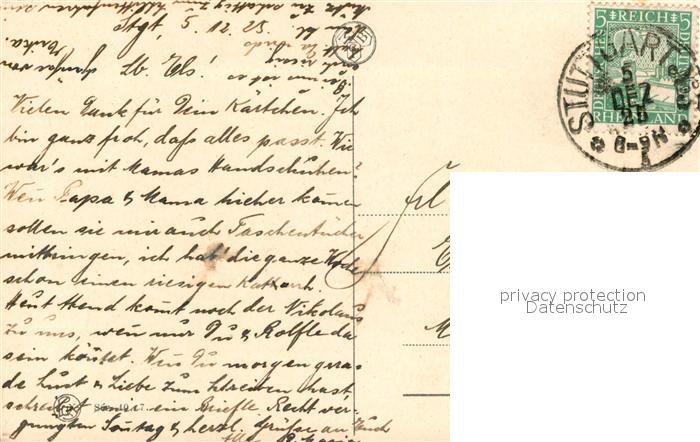 Stgt, 5. 12. 25.
Lb. Els!
Vielen Dank für Dein Kärtchen. Ich
bin ganz froh, daß alles passt. Wie
war's mit Mamas Handschuhen?
Wen Papa & Mama hieher kommen
sollen sie mir auch Taschentücher
mitbringen, ich hab' die ganze Woche
schon einen riesigen Katharrh.
Heut Abend komt noch der Nikolaus
zu uns, wen nur Du & Rolfle da
sein köntet. Wen Du morgen gera-
de Lust & Liebe zum Schreiben hast,
schreibst mir ein Briefle. Recht ver-
gnügten Sontag & herzl. Grüße an Euch
5 REICH 5
DEUTSCHES
RHEINLAND
STUTTGART
5
DEZ
25
8-9N
Frl
privacy protection
Datenschutz